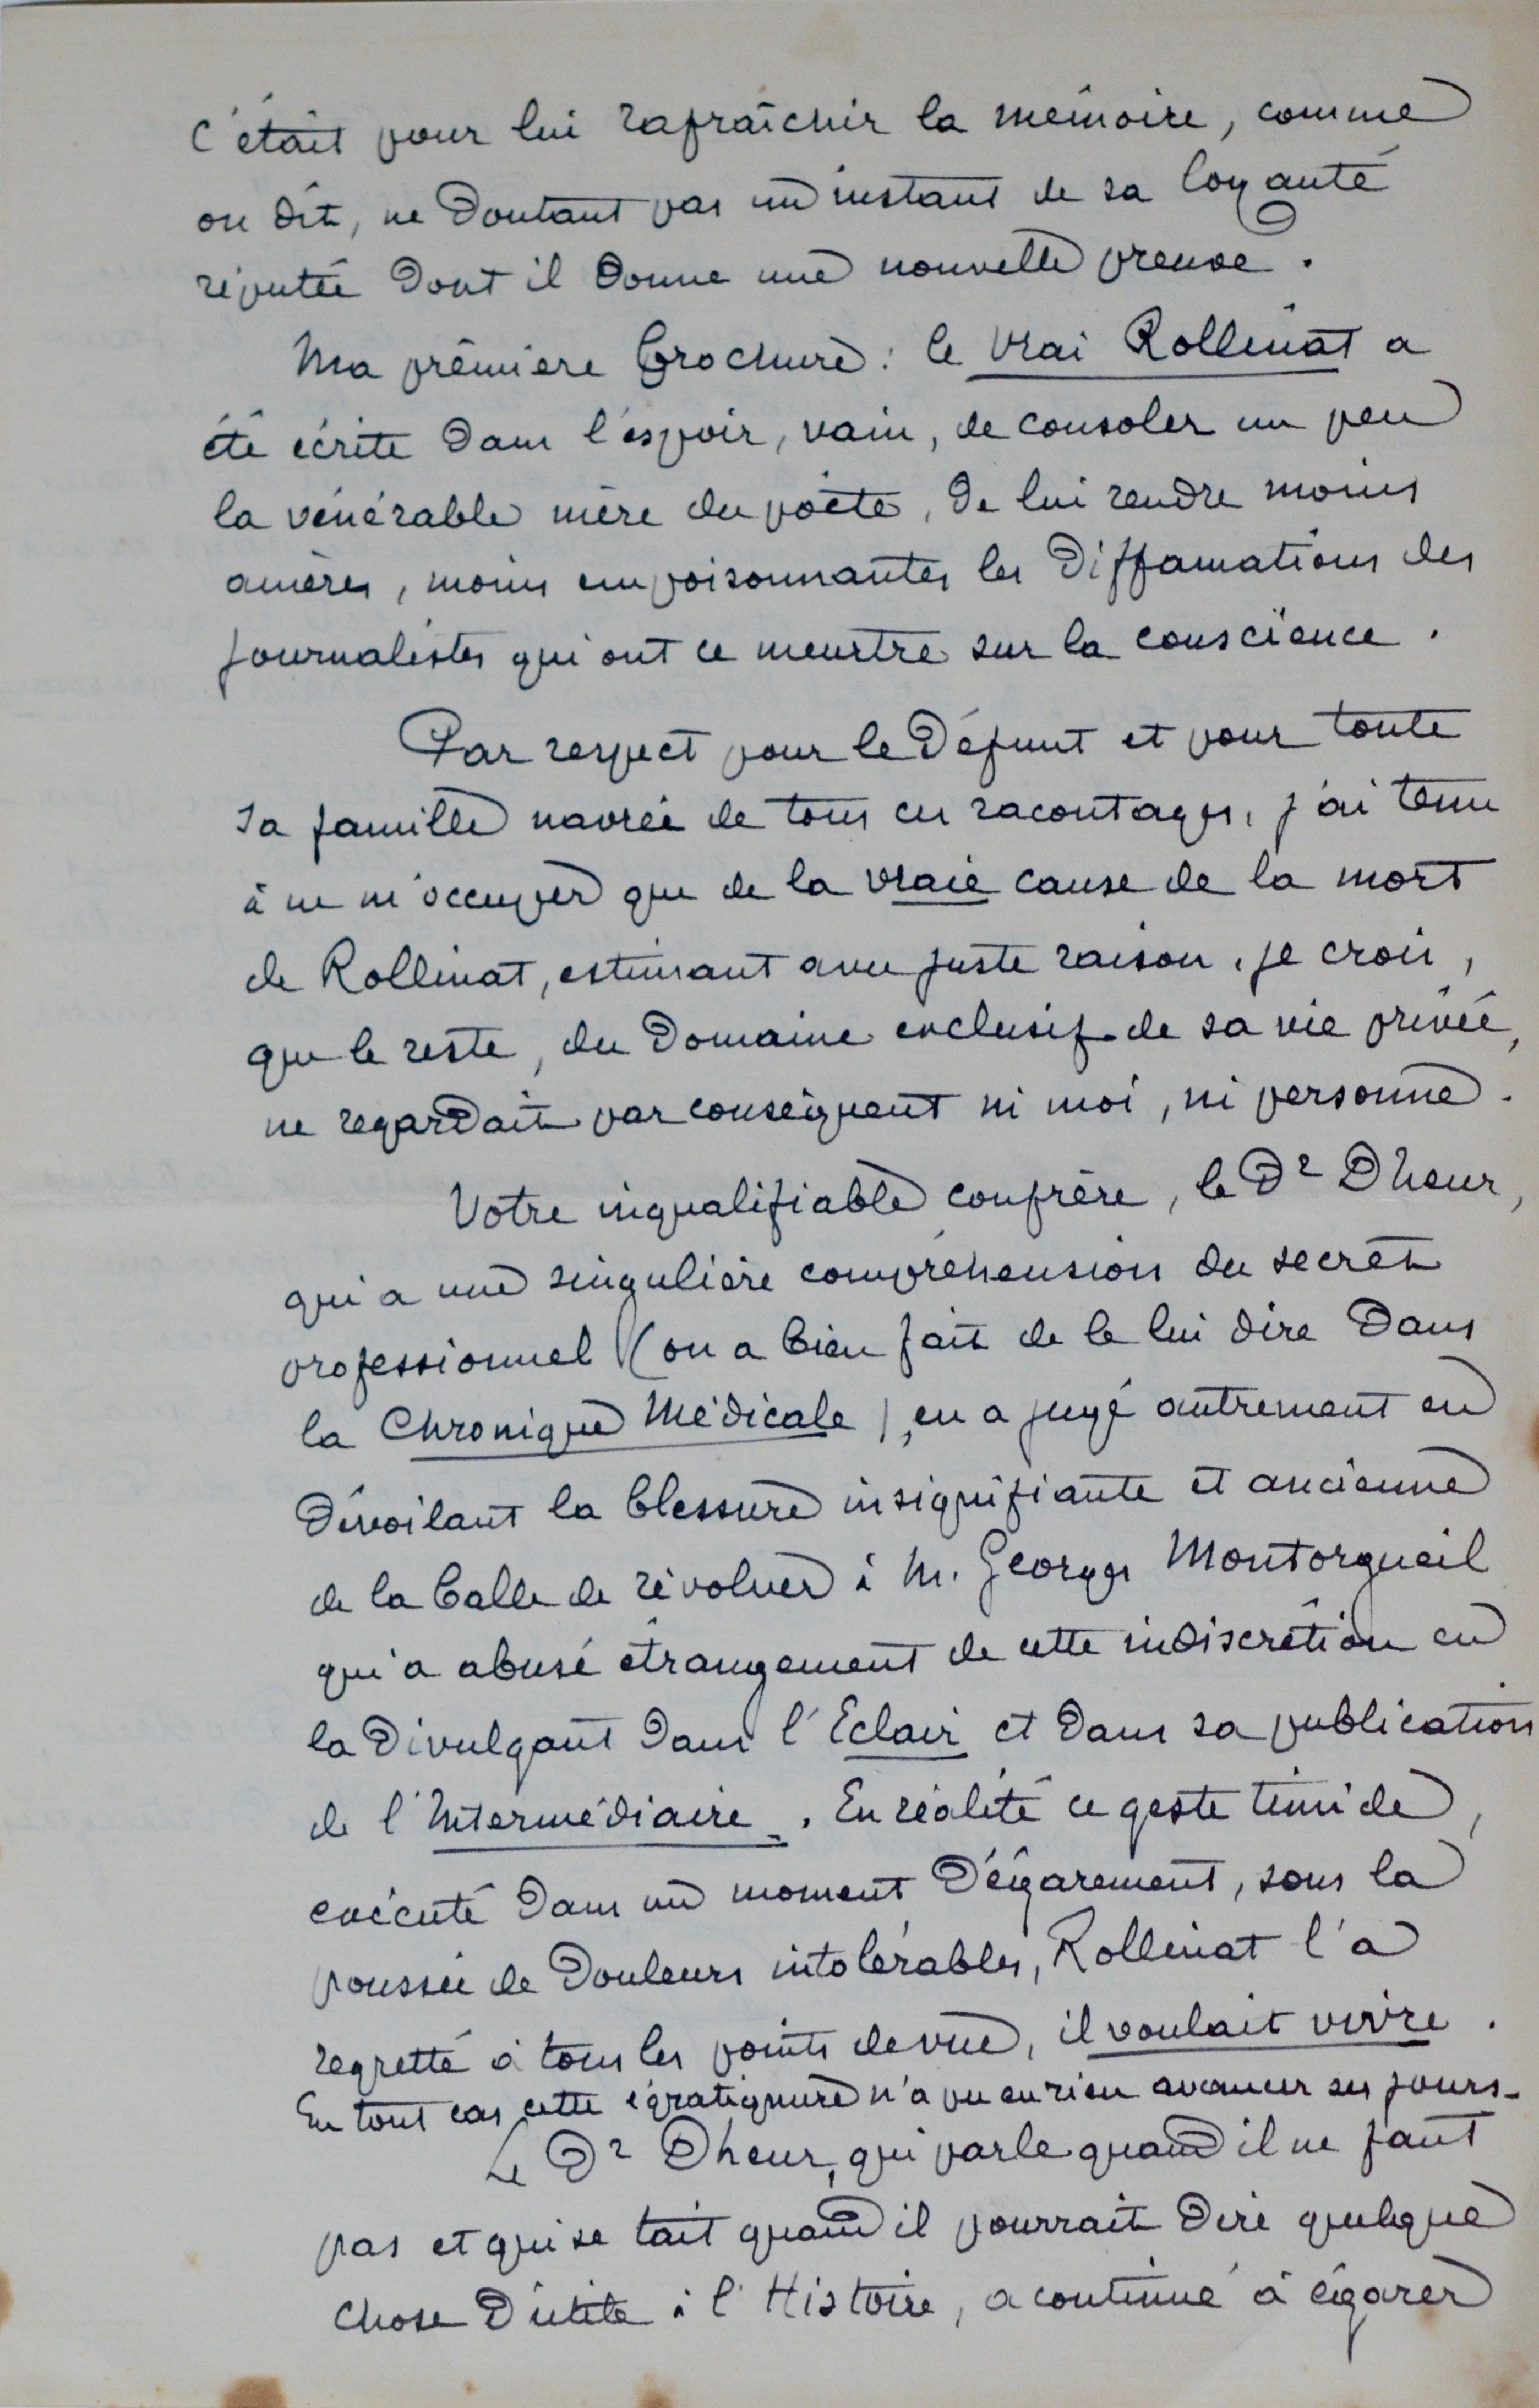 C'était pour lui rafraîchir la mémoire, comme
on dit, ne doutant pas un instant de sa loyauté
réputée dont il donne une nouvelle preuve.
Ma première brochure : le vrai Rollinat a
été écrite dans l'espoir, vain, de consoler un peu
la vénérable mère du poète, de lui rendre moins
amères, moins empoisonnantes les diffamations des
journalistes qui ont ce meurtre sur la conscience.
Par respect pour le défunt et pour toute
sa famille navrée de tous ces racontages, j'ai tenu
à ne m'occuper que de la vraie cause de la mort
de Rollinat, estimant avec juste raison, je crois,
que le reste, du domaine exclusif de sa vie privée,
ne regardait par conséquent ni moi, ni personne.
Votre inqualifiable confrère, le Dr Dheur,
qui a une singulière compréhension du secret
professionnel (on a bien fait de le lui dire dans
la Chronique Médicale), en a jugé autrement en
dévoilant la blessure insignifiante et ancienne
de la balle de révolver à M. Georges Montorgueil
qui a abusé étrangement de cette indiscrétion en
la divulgant dans l'Eclair et dans sa publication
de l'Intermédiaire. En réalité ce geste timide,
exécuté dans un moment d'égarement, sous la
poussée de douleurs intolérables, Rollinat l'a
regretté à tous les points de vue, il voulait vivre.
En tout cas cette égratignure n'a pu en rien avancer ses jours.
Le Dr Dheur, qui parle quand il ne faut
pas et qui se tait quand il pourrait dire quelque
chose d'utile à l'Histoire, a continué à égarer